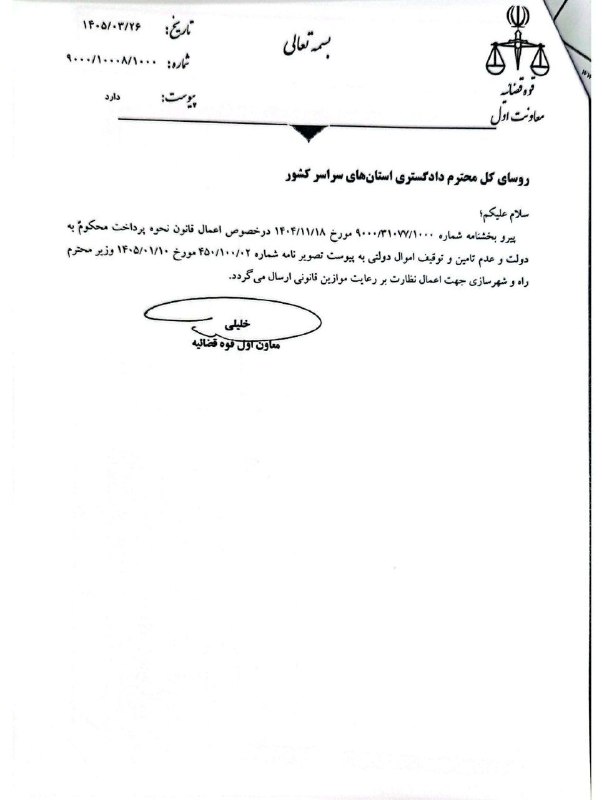 قوه قضائیه
معاونت اول
بسمه تعالی
تاریخ: ۱۴۰۵/۰۳/۲۶
شماره: ۹۰۰۰/۱۰۰۰۸/۱۰۰۰
پیوست: دارد
روسای کل محترم دادگستری استان‌های سراسر کشور
سلام علیکم؛
پیرو بخشنامه شماره ۹۰۰۰/۳۱۰۷۷/۱۰۰۰ مورخ ۱۴۰۴/۱۱/۱۸ درخصوص اعمال قانون نحوه پرداخت محکومٌ به
دولت و عدم تامین و توقیف اموال دولتی به پیوست تصویر نامه شماره ۴۵۰/۱۰۰/۰۲ مورخ ۱۴۰۵/۰۱/۱۰ وزیر محترم
راه و شهرسازی جهت اعمال نظارت بر رعایت موازین قانونی ارسال می‌گردد.
خلیلی
معاون اول قوه قضائیه